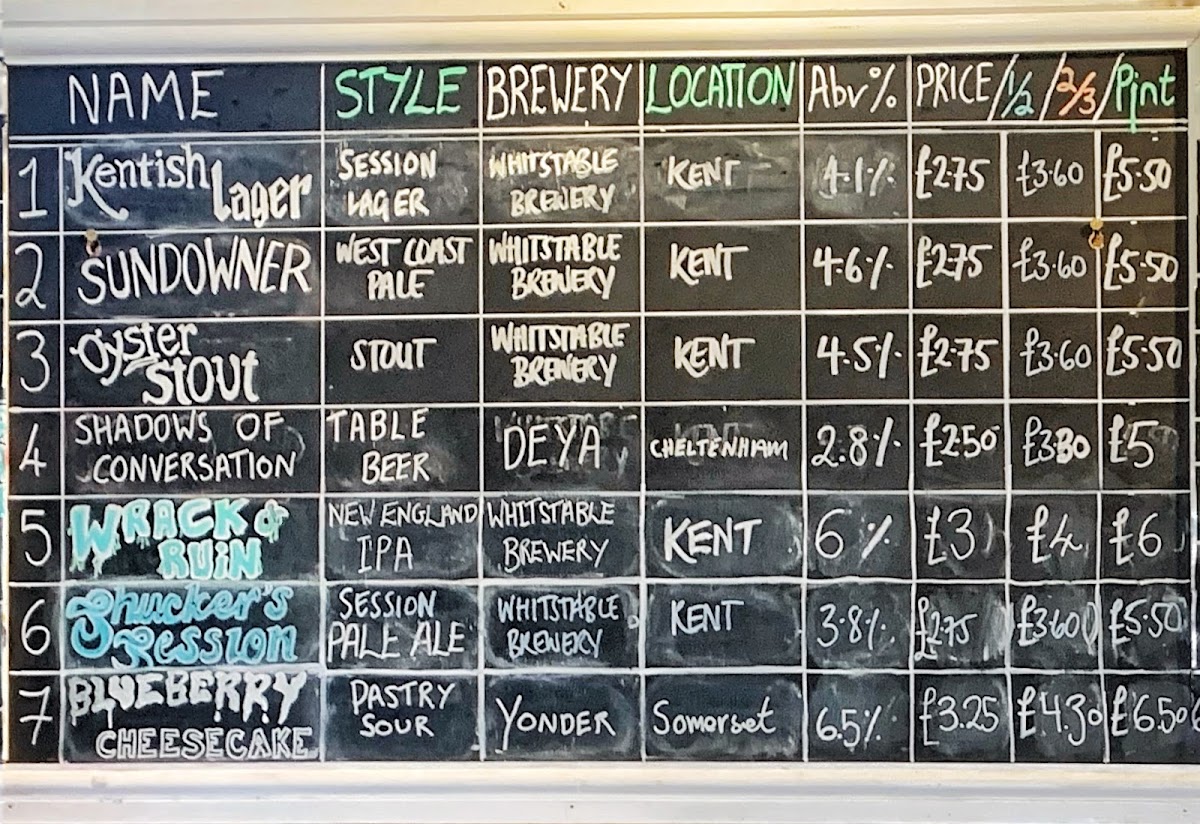 NAME STYLE BREWERY LOCATION Abv% PRICE/½/⅔/Pint
1 Kentish Lager SESSION LAGER WHITSTABLE BREWERY KENT 4.1% £2.75 £3.60 £5.50
2 SUNDOWNER WEST COAST PALE WHITSTABLE BREWERY KENT 4.6% £2.75 £3.60 £5.50
3 Oyster Stout STOUT WHITSTABLE BREWERY KENT 4.5% £2.75 £3.60 £5.50
4 SHADOWS OF CONVERSATION TABLE BEER DEYA CHELTENHAM 2.8% £2.50 £3.30 £5
5 WRACK & RUIN NEW ENGLAND IPA WHITSTABLE BREWERY KENT 6% £3 £4 £6
6 Shucker's Session SESSION PALE ALE WHITSTABLE BREWERY KENT 3.8% £2.75 £3.60 £5.50
7 BLUEBERRY CHEESECAKE PASTRY SOUR YONDER Somerset 6.5% £3.25 £4.30 £6.50